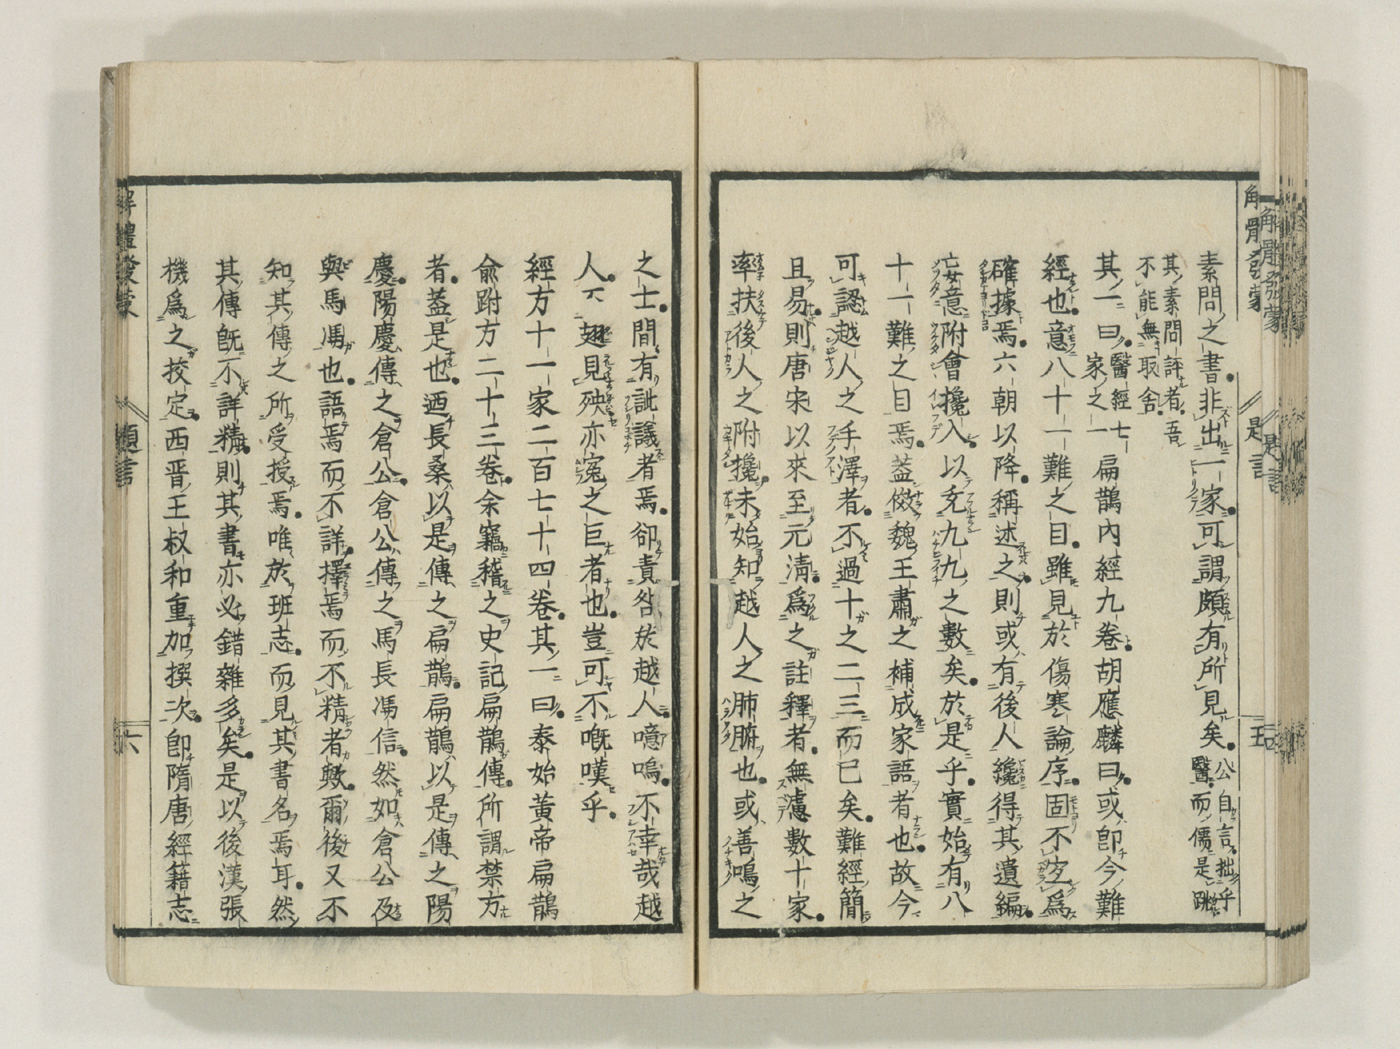 素問之書非出一家可謂頗有所見矣公自言拙乎
醫而儒是
其素問評者吾
不能無取舍
其一曰醫經七
家之一扁鵲內經九卷胡應麟曰或卽今難
經也意八十一難之目雖見於傷寒論序固不
爲
確據焉六朝以降稱述之則或有後人纔得其遺編
妄意附會攙入以充九九之數矣於是乎實始有八
十一難之目焉蓋倣魏王肅之補成家語者也故今
可認越人之手澤者不過十之二三而已矣難經簡
且易則唐宋以來至元淸爲之註釋者無慮數十家
率扶後人之附攙未始知越人之肺腑也或善鳴之
之士間有訿議者焉卻責咎於越人噫嗚不幸哉越
人不翅見殃亦冤之巨者也豈可不嘅嘆乎
經方十一家二百七十四卷其一曰泰始黃帝扁鵲
俞跗方二十三卷余竊稽之史記扁鵲傳所謂禁方
者蓋是也迺長桑以是傳之扁鵲扁鵲以是傳之陽
慶陽慶傳之倉公倉公傳之馬長馮信然如倉公及
與馬馮也語焉而不詳擇焉而不精者歟爾後又不
知其傳之所受授焉唯於班志而見其書名焉耳然
其傳旣不詳精則其書亦必錯雜多矣是以後漢張
機爲之挍定西晋王叔和重加撰次卽隋唐經籍志
解體發蒙
題言
五
六